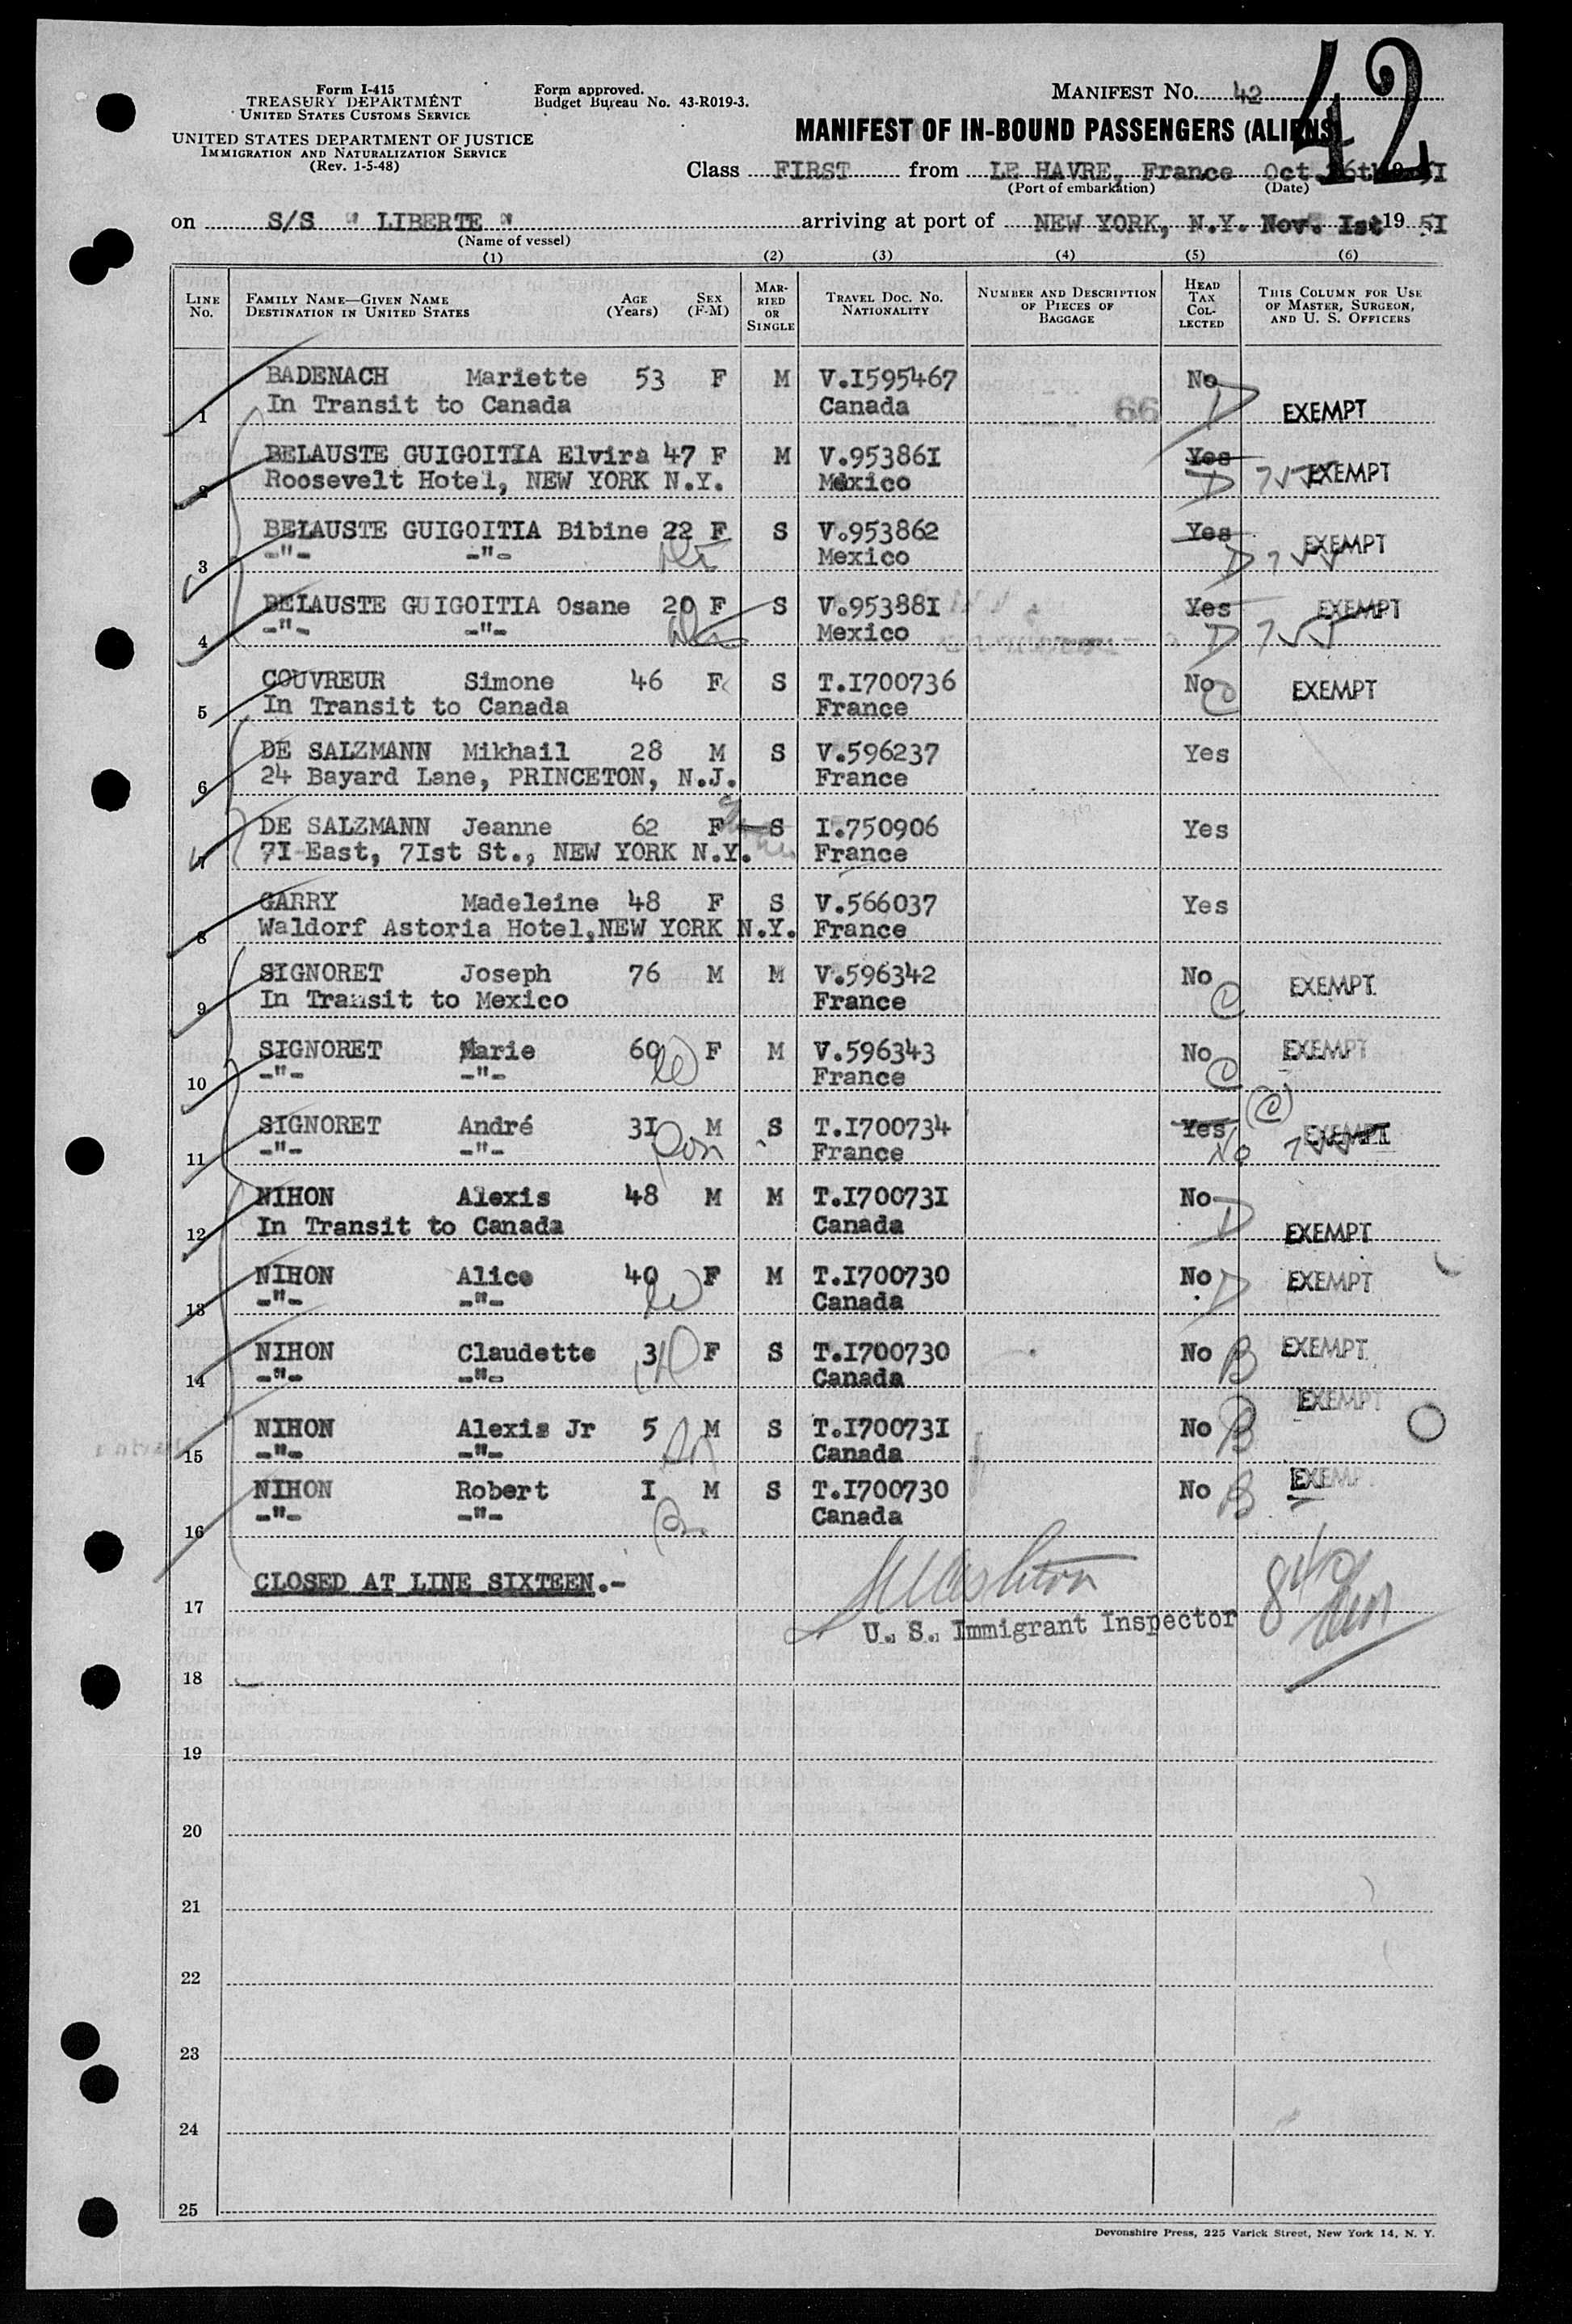 42
Form I-415
TREASURY DEPARTMENT
UNITED STATES CUSTOMS SERVICE
UNITED STATES DEPARTMENT OF JUSTICE
IMMIGRATION AND NATURALIZATION SERVICE
(Rev. 1-5-48)
Form approved.
Budget Bureau No. 43-R019-3.
MANIFEST NO. 42
MANIFEST OF IN-BOUND PASSENGERS (ALIENS)
Class FIRST from LE HAVRE, France Oct. 26th 19 5I
(Port of embarkation) (Date)
on S/S " LIBERTE " arriving at port of NEW YORK, N.Y. Nov. Ist 19 5I
(Name of vessel)
(1) (2) (3) (4) (5) (6)
LINE No.
FAMILY NAME—GIVEN NAME
DESTINATION IN UNITED STATES
AGE (Years)
SEX (F-M)
MARRIED OR SINGLE
TRAVEL DOC. NO.
NATIONALITY
NUMBER AND DESCRIPTION OF PIECES OF BAGGAGE
HEAD TAX COLLECTED
THIS COLUMN FOR USE OF MASTER, SURGEON, AND U. S. OFFICERS
1 BADENACH Mariette 53 F M V.I595467 No D EXEMPT
In Transit to Canada Canada 66
2 BELAUSTE GUIGOITIA Elvira 47 F M V.95386I Yes D EXEMPT
Roosevelt Hotel, NEW YORK N.Y. Mexico
3 BELAUSTE GUIGOITIA Bibine 22 F S V.953862 Yes D EXEMPT
-"- -"- Mexico
4 BELAUSTE GUIGOITIA Osane 20 F S V.95388I Yes D EXEMPT
-"- -"- Mexico
5 COUVREUR Simone 46 F S T.I700736 No C EXEMPT
In Transit to Canada France
6 DE SALZMANN Mikhail 28 M S V.596237 Yes
24 Bayard Lane, PRINCETON, N.J. France
7 DE SALZMANN Jeanne 62 F S I.750906 Yes
7I East, 7Ist St., NEW YORK N.Y. France
8 GARRY Madeleine 48 F S V.566037 Yes
Waldorf Astoria Hotel,NEW YORK N.Y. France
9 SIGNORET Joseph 76 M M V.596342 No C EXEMPT
In Transit to Mexico France
10 SIGNORET Marie 60 F M V.596343 No C EXEMPT
-"- -"- France
11 SIGNORET André 3I Son M S T.I700734 Yes No C EXEMPT
-"- -"- France
12 NIHON Alexis 48 M M T.I70073I No D EXEMPT
In Transit to Canada Canada
13 NIHON Alice 40 F M T.I700730 No D EXEMPT
-"- -"- Canada
14 NIHON Claudette 3 F S T.I700730 No B EXEMPT
-"- -"- Canada
15 NIHON Alexis Jr 5 M S T.I70073I No B EXEMPT
-"- -"- Canada
16 NIHON Robert I M S T.I700730 No B EXEMPT
-"- -"- Canada
17 CLOSED AT LINE SIXTEEN.-
U. S. Immigrant Inspector
18
19
20
21
22
23
24
25
Devonshire Press, 225 Varick Street, New York 14, N. Y.